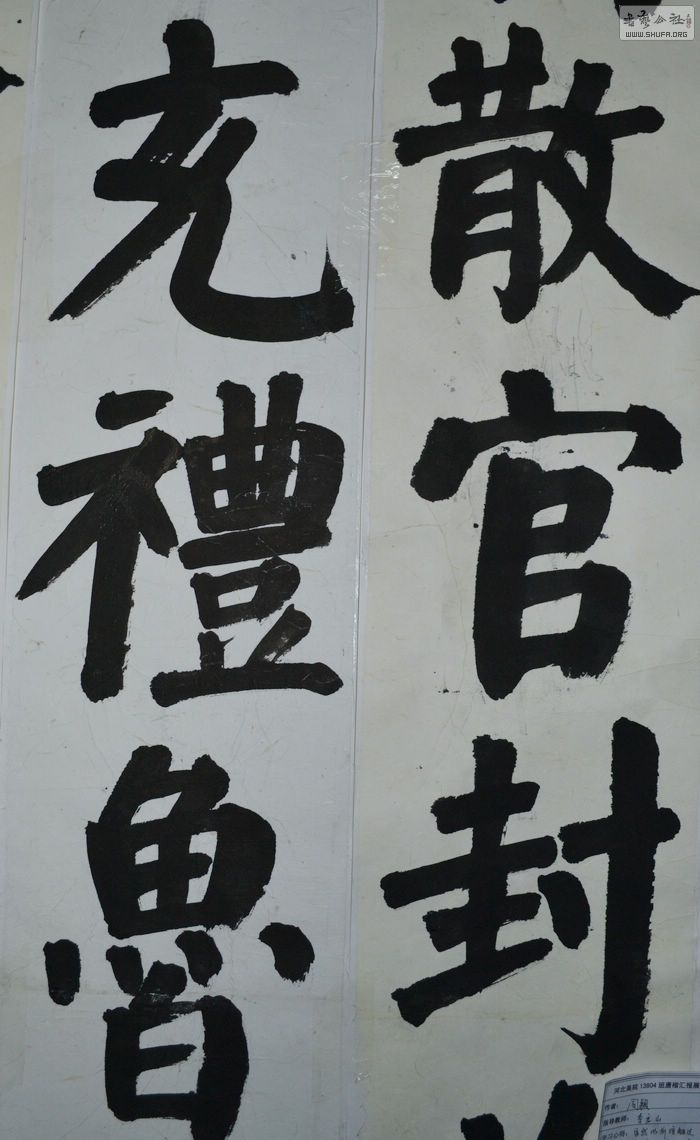 散官封
充禮魯
WWW.SHUFA.ORG
河北美院13804班唐楷汇报展
作者:
指导教师: